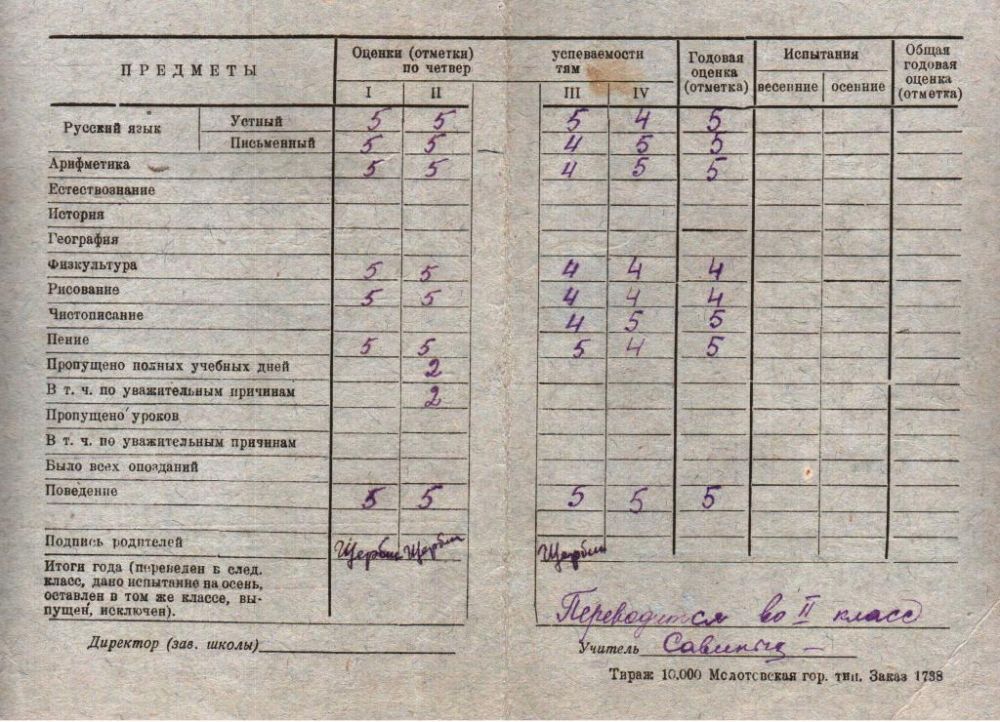 ПРЕДМЕТЫ Оценки (отметки) по четвер успеваемости тям Годовая оценка (отметка) Испытания Общая годовая оценка (отметка)
I II III IV весенние осенние
Русский язык Устный 5 5 5 4 5
Письменный 5 5 4 5 5
Арифметика 5 5 4 5 5
Естествознание
История
География
Физкультура 5 5 4 4 4
Рисование 5 5 4 4 4
Чистописание 4 5 5
Пение 5 5 5 4 5
Пропущено полных учебных дней 2
В т. ч. по уважительным причинам 2
Пропущено уроков
В т. ч. по уважительным причинам
Было всех опозданий
Поведение 5 5 5 5 5
Подпись родителей
Итоги года (переведен в след.
класс, дано испытание на осень,
оставлен в том же классе, вы-
пущен, исключен).
Переводится во II класс
Директор (зав. школы) Учитель
Тираж 10.000 Молотовская гор. тип. Заказ 1738